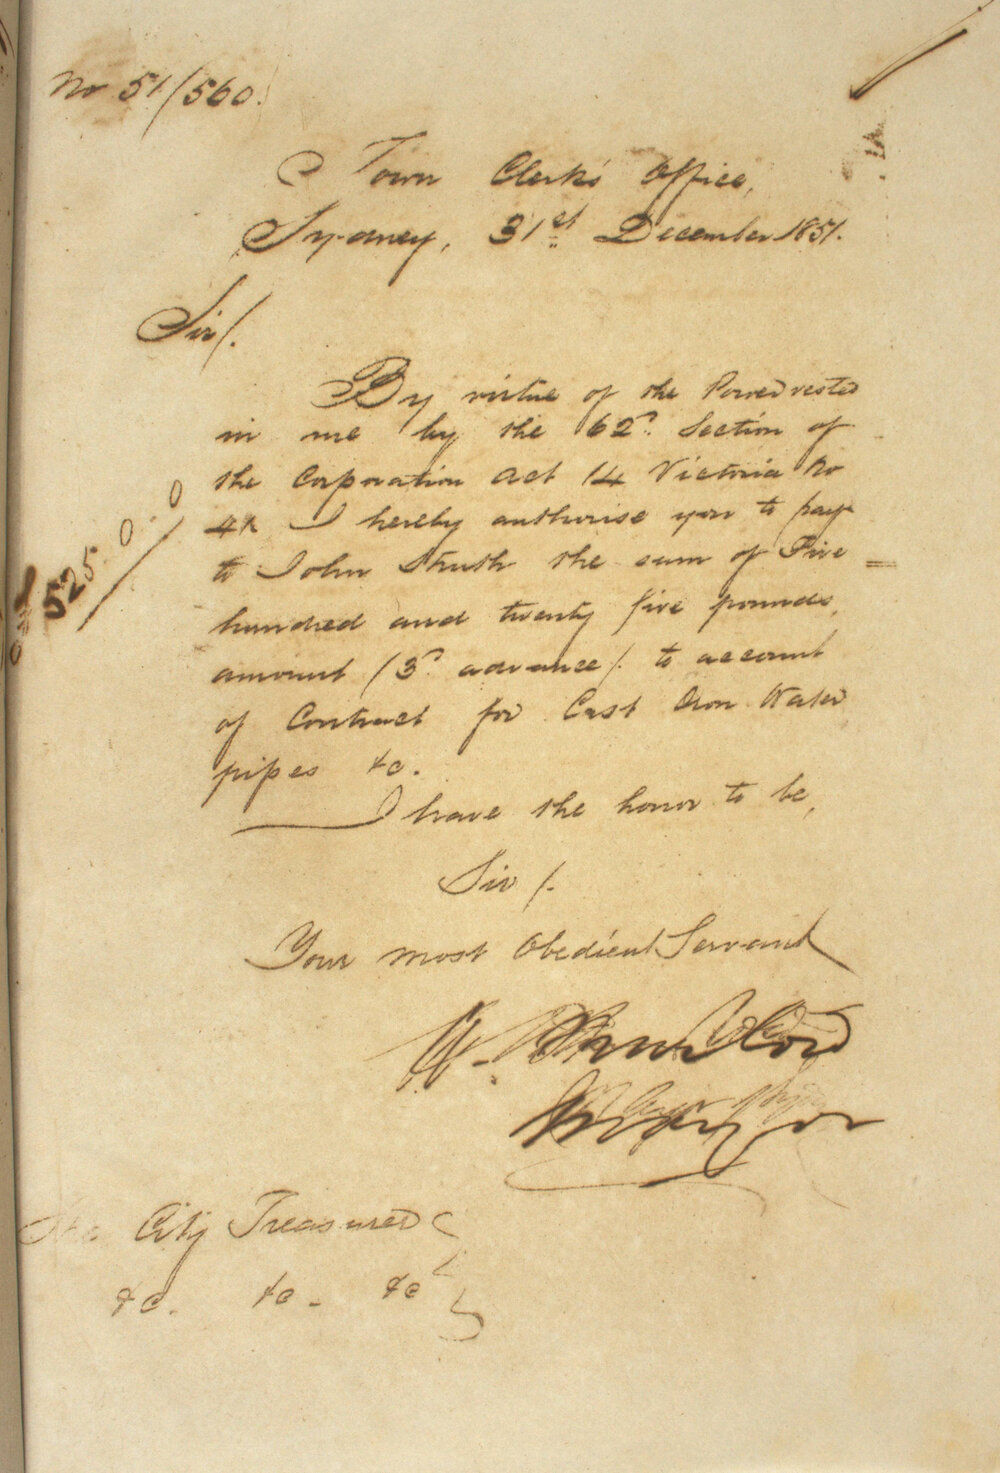 No 51/560.
Town Clerk's Office,
Sydney, 31st December 1851.
Sir/.
By virtue of the Power vested
in me by the 62d. Section of
the Corporation Act 14 Victoria No
41 I hereby authorise you to pay
to John Struth the sum of Five
525.0.0
hundred and twenty five pounds,
amount (3d. advance/. to account
of Contract for Cast Iron Water
pipes &c.
I have the honor to be,
Sir/.
Your most Obedient Servant
W.
Mayor
The City Treasurer
&c. &c. &c